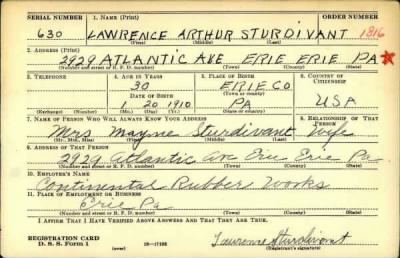 SERIAL NUMBER 1. NAME (Print) ORDER NUMBER
630 LAWRENCE ARTHUR STURDIVANT 1316
(First) (Middle) (Last)
2. ADDRESS (Print)
2929 ATLANTIC AVE ERIE ERIE PA
(Number and street or R. F. D. number) (Town) (County) (State)
3. TELEPHONE 4. AGE IN YEARS 5. PLACE OF BIRTH 6. COUNTRY OF CITIZENSHIP
30 ERIE CO
DATE OF BIRTH (Town or county)
1 20 1910 PA USA
(Exchange) (Number) (Mo.) (Day) (Yr.) (State or country)
7. NAME OF PERSON WHO WILL ALWAYS KNOW YOUR ADDRESS 8. RELATIONSHIP OF THAT PERSON
Mrs Mayne Sturdivant Wife
(Mr., Mrs., Miss) (First) (Middle) (Last)
9. ADDRESS OF THAT PERSON
2929 Atlantic Ave Erie Erie Pa
(Number and street or R. F. D. number) (Town) (County) (State)
10. EMPLOYER'S NAME
Continental Rubber Works
11. PLACE OF EMPLOYMENT OR BUSINESS
Erie Pa
(Number and street or R. F. D. number) (Town) (County) (State)
I AFFIRM THAT I HAVE VERIFIED ABOVE ANSWERS AND THAT THEY ARE TRUE.
REGISTRATION CARD
D. S. S. Form 1 (over) Lawrence Sturdivant
(Registrant's signature)